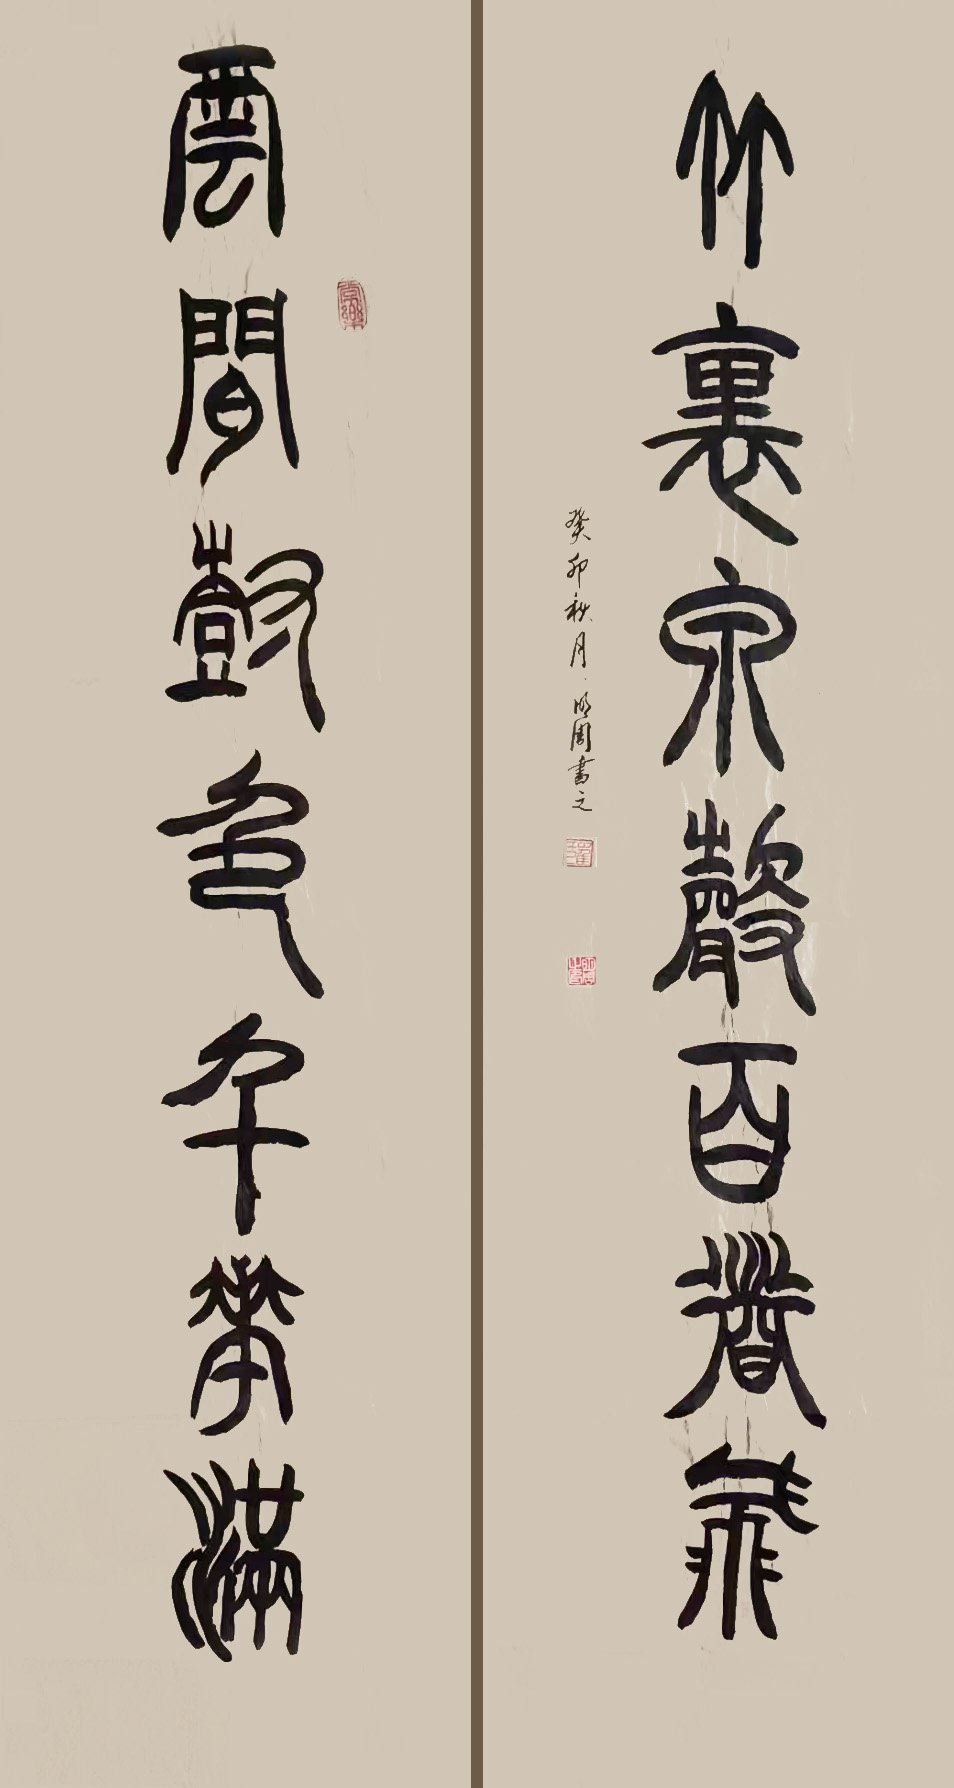 竹裏泉聲百道飛
癸卯秋月明周書之
雲間尌色千華滿